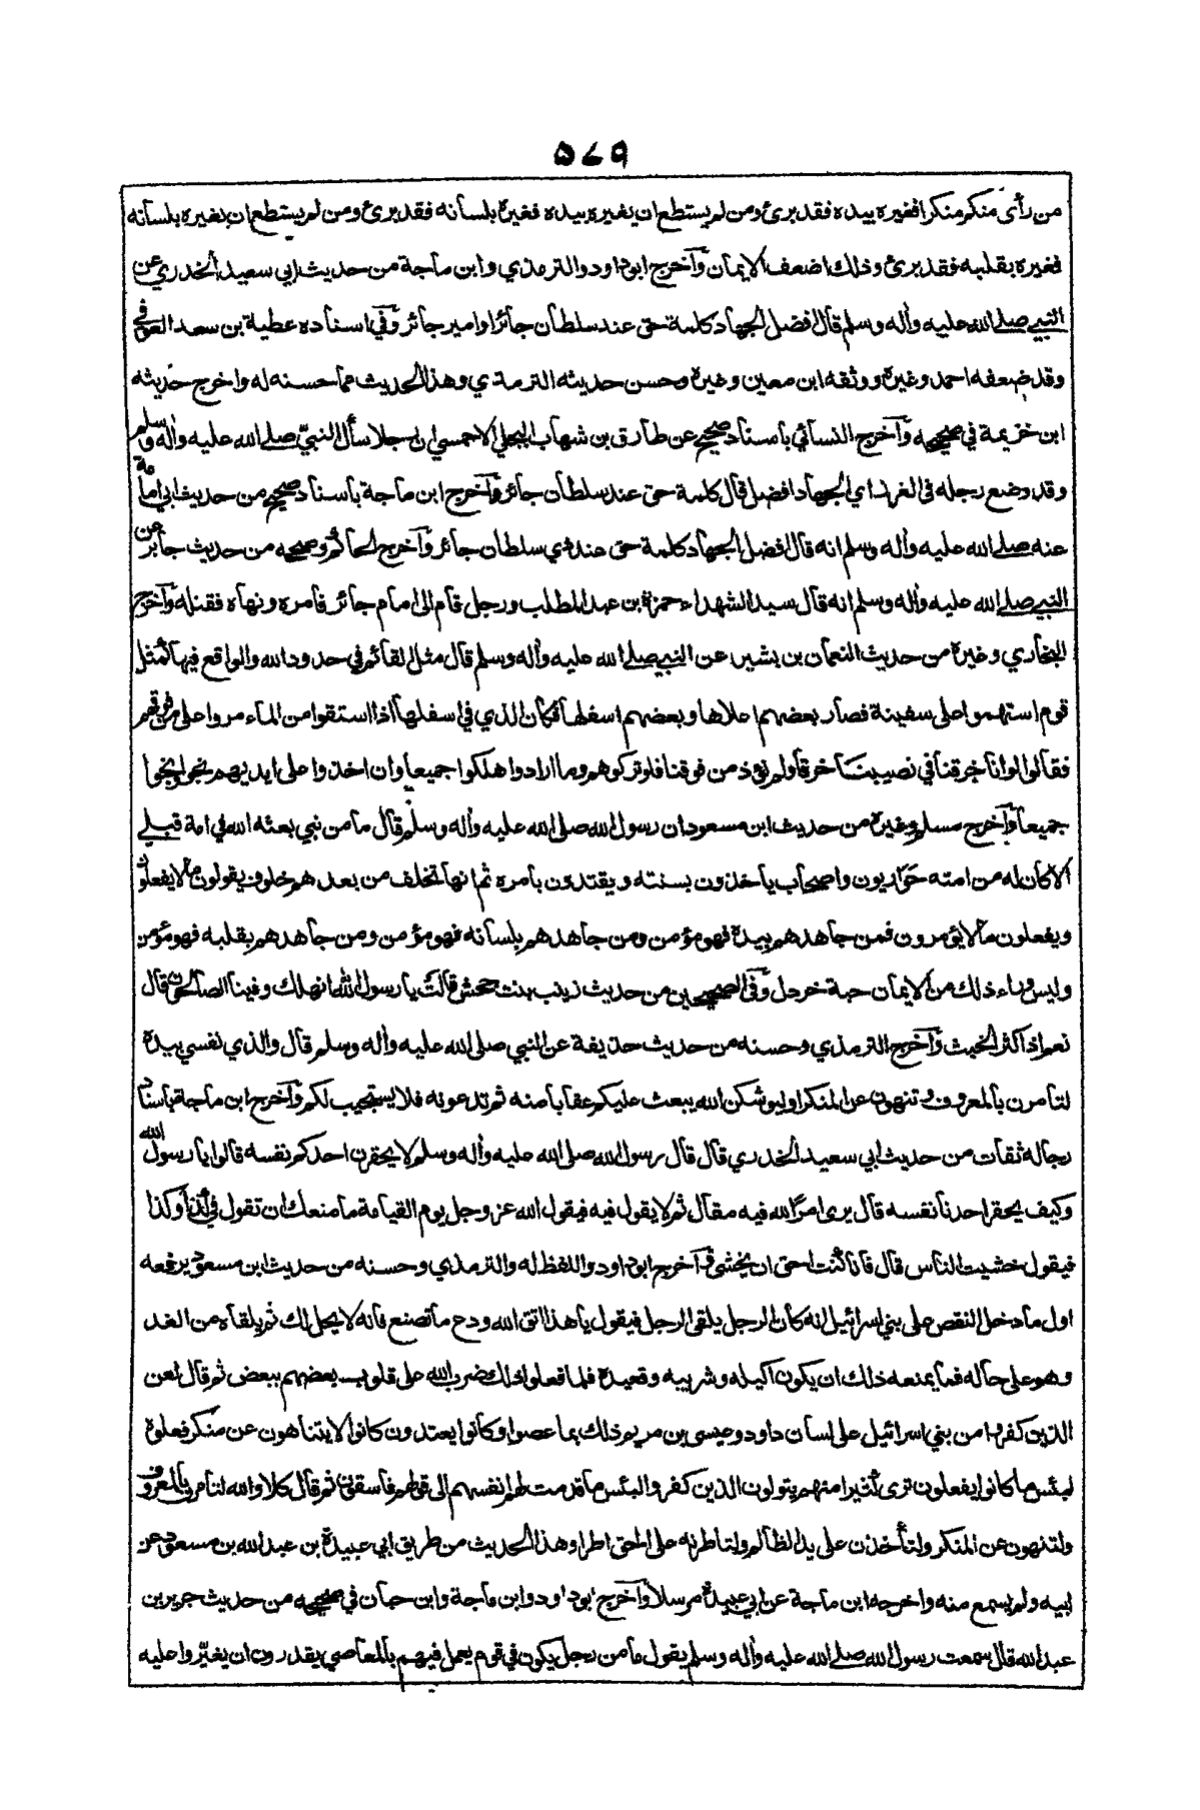 ٥٦٩
من رأى منكم منكرا فغيره بيده فقد برئ ومن لم يستطع ان يغيره بيده فغيره بلسانه فقد برئ ومن لم يستطع ان يغيره بلسانه
فغيره بقلبه فقد برئ وذلك اضعف الايمان وأخرج ابوداود والترمذي وابن ماجة من حديث ابي سعيد الخدري عن
النبي صلى الله عليه وأله وسلم قال افضل الجهاد كلمة حق عند سلطان جائر او امير جائر وفي اسناده عطية بن سعد العوفي
وقد ضعفه احمد وغيره ووثقه ابن معين وغيره وحسن حديثه الترمذي وهذا الحديث مما حسنه له واخرج حديثه
ابن خزيمة في صحيحه وأخرج النسائي باسناد صحيح عن طارق بن شهاب البجلي الاحمسي ان رجلا سأل النبي صلى الله عليه وأله وسلم
وقد وضع رجله في الغرز اي الجهاد افضل قال كلمة حق عند سلطان جائر وأخرج ابن ماجة باسناد صحيح من حديث ابي امامة
عنه صلى الله عليه وأله وسلم انه قال افضل الجهاد كلمة حق عند ذي سلطان جائر وأخرج الحاكم وصححه من حديث جابر عن
النبي صلى الله عليه وأله وسلم انه قال سيد الشهداء حمزة بن عبد المطلب ورجل قام الى امام جائر فامره ونهاه فقتله وأخرج
البخاري وغيره من حديث النعمان بن بشير عن النبي صلى الله عليه وأله وسلم قال مثل القائم في حدود الله والواقع فيها كمثل
قوم استهموا على سفينة فصار بعضهم اعلاها وبعضهم اسفلها فكان الذي في اسفلها اذا استقوا من الماء مروا على من فوقهم
فقالوا لو انا خرقنا في نصيبنا خرقا ولم نؤذ من فوقنا فلو تركوهم وما ارادوا هلكوا جميعا وان اخذوا على ايديهم نجوا ونجوا
جميعا وأخرج مسلم وغيره من حديث ابن مسعود ان رسول الله صلى الله عليه وأله وسلم قال ما من نبي بعثه الله في امة قبلي
الا كان له من امته حواريون واصحاب يأخذون بسنته ويقتدون بامره ثم انها تخلف من بعدهم خلوف يقولون ما لا يفعلون
ويفعلون ما لا يؤمرون فمن جاهدهم بيده فهو مؤمن ومن جاهدهم بلسانه فهو مؤمن ومن جاهدهم بقلبه فهو مؤمن
وليس وراء ذلك من الايمان حبة خردل وفي الصحيحين من حديث زينب بنت جحش قالت يا رسول الله انهلك وفينا الصالحون قال
نعم اذا كثر الخبث وأخرج الترمذي وحسنه من حديث حذيفة عن النبي صلى الله عليه وأله وسلم قال والذي نفسي بيده
لتأمرن بالمعروف وتنهون عن المنكر او ليوشكن الله يبعث عليكم عقابا منه ثم تدعونه فلا يستجيب لكم وأخرج ابن ماجة باسناد
رجاله ثقات من حديث ابي سعيد الخدري قال قال رسول الله صلى الله عليه وأله وسلم لا يحقرن احدكم نفسه قالوا يا رسول الله
وكيف يحقر احدنا نفسه قال يرى امر الله فيه مقال ثم لا يقول فيه فيقول الله عز وجل يوم القيامة ما منعك ان تقول في كذا وكذا
فيقول خشيت الناس قال فانا كنت احق ان يخشى وأخرج ابوداود واللفظ له والترمذي وحسنه من حديث ابن مسعود يرفعه
اول ما دخل النقص على بني اسرائيل انه كان الرجل يلقى الرجل فيقول يا هذا اتق الله ودع ما تصنع فانه لا يحل لك ثم يلقاه من الغد
وهو على حاله فما يمنعه ذلك ان يكون اكيله وشريبه وقعيده فلما فعلوا ذلك ضرب الله على قلوب بعضهم ببعض ثم قال لعن
الذين كفروا من بني اسرائيل على لسان داود وعيسى بن مريم ذلك بما عصوا وكانوا يعتدون كانوا لا يتناهون عن منكر فعلوه
لبئس ما كانوا يفعلون ترى كثيرا منهم يتولون الذين كفروا لبئس ما قدمت لهم انفسهم الى قوله فاسقون ثم قال كلا والله لتأمرن بالمعروف
ولتنهون عن المنكر ولتأخذن على يد الظالم ولتاطرنه على الحق اطرا وهذا الحديث من طريق ابي عبيدة بن عبد الله بن مسعود عن
ابيه ولم يسمع منه واخرجه ابن ماجة عن ابي عبيدة مرسلا وأخرج ابوداود وابن ماجة وابن حبان في صحيحه من حديث جرير بن
عبد الله قال سمعت رسول الله صلى الله عليه وأله وسلم يقول ما من رجل يكون في قوم يعمل فيهم بالمعاصي يقدرون ان يغيّروا عليه